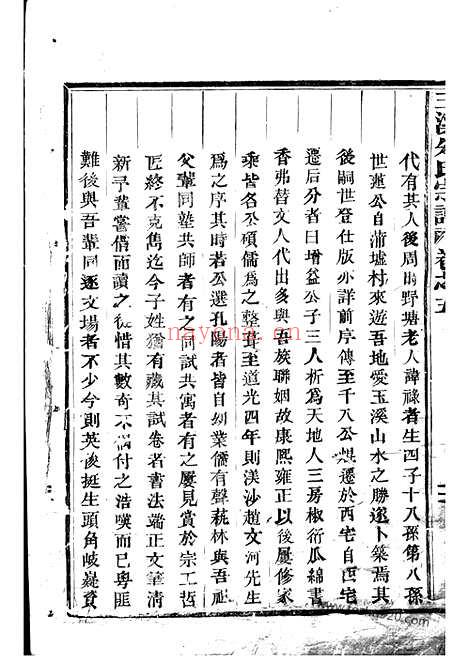 代有其人後周時野塘老人諱祿者生四子十八孫第八孫
世蓮公自蒲墟村來遊吾地愛玉溪山水之勝遂卜築焉其
後嗣世登仕版亦詳前序傳至千八公
遷於西宅自西宅
遷后分者曰增益公子三人析為天地人三房椒衍瓜綿書
香弗替文人代出多與吾族聯姻故康熙雍正以後屢修家
乘皆名公碩儒為之整葺至道光四年則渼沙趙文河先生
為之序其時若公選孔陽者皆自幼業儒有聲藝林與吾祖
父輩同塾共師者有之同試共寓者有之屢見賞於宗工哲
匠終不克雋迄今子姓猶有藏其試卷者書法端正文筆清
新予輩嘗借而讀之
惜其數奇不偶付之浩嘆而已粤匪
難後與吾輩同逐文場者不少今則英俊挺生頭角岐嶷貧
nayona.cn